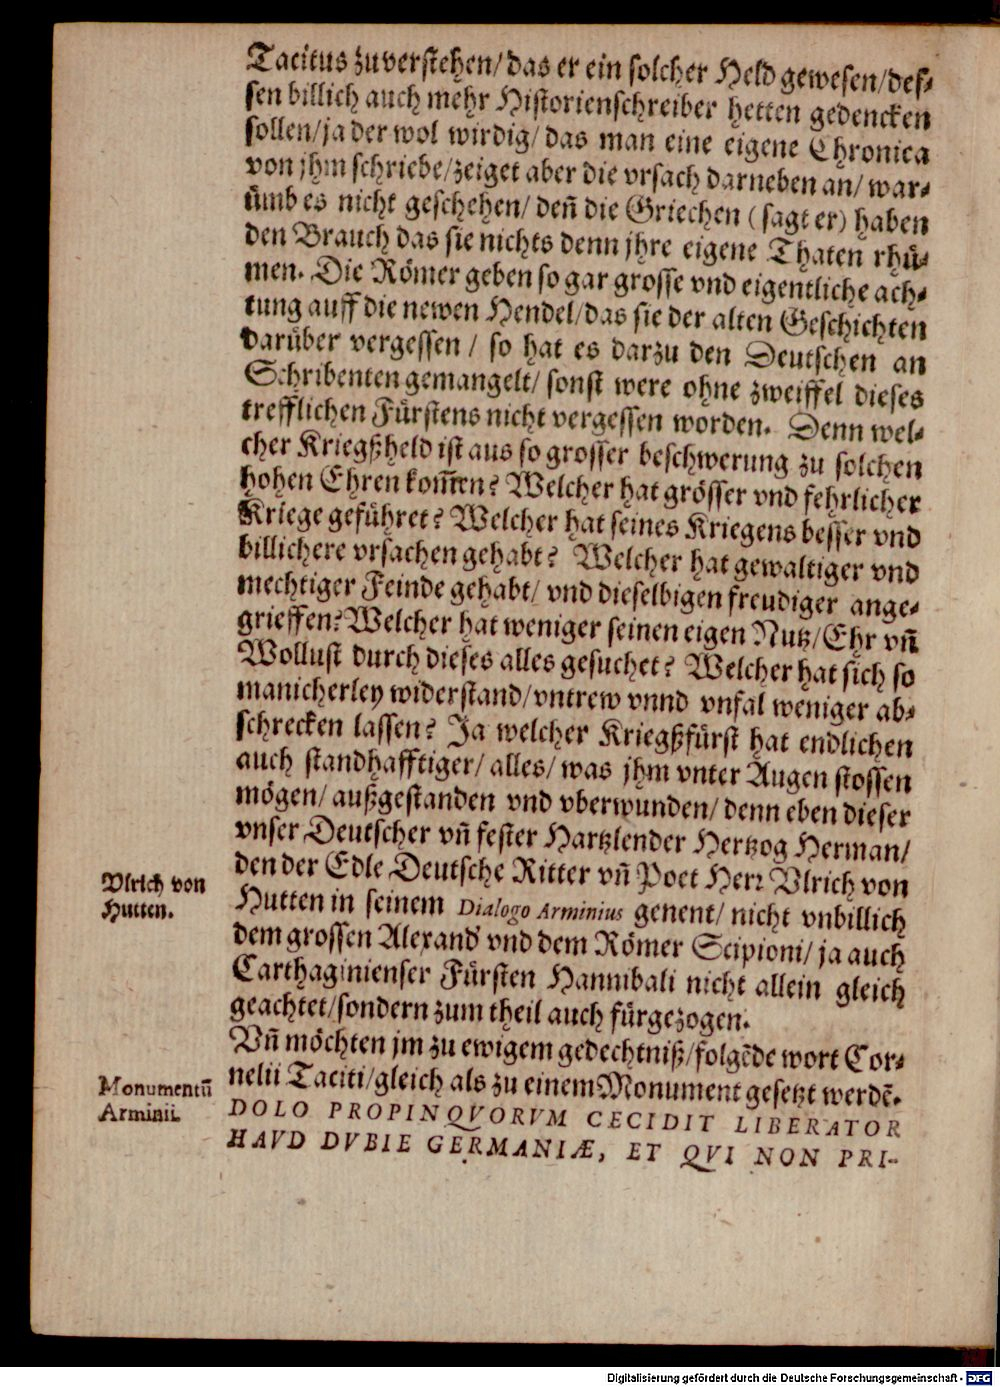 Tacitus zuverstehen/ das er ein solcher Held gewesen/ des⸗
sen billich auch mehr Historienschreiber hetten gedencken
sollen/ ja der wol wirdig/ das man eine eigene Chronica
von jhm schriebe/ zeiget aber die vrsach darneben an/ war⸗
ümb es nicht geschehen/ deñ die Griechen (sagt er) haben
den Brauch das sie nichts denn jhre eigene Thaten rhü⸗
men. Die Römer geben so gar grosse vnd eigentliche ach⸗
tung auff die newen Hendel/ das sie der alten Geschichten
darüber vergessen / so hat es darzu den Deutschen an
Schribenten gemangelt/ sonst were ohne zweiffel dieses
trefflichen Fürstens nicht vergessen worden. Denn wel⸗
cher Kriegßheld ist aus so grosser beschwerung zu solchen
hohen Ehren kom̃en? Welcher hat grösser vnd fehrlicher
Kriege geführet? Welcher hat seines Kriegens besser vnd
billichere vrsachen gehabt? Welcher hat gewaltiger vnd
mechtiger Feinde gehabt/ vnd dieselbigen freudiger ange⸗
grieffen? Welcher hat weniger seinen eigen Nutz/ Ehr vñ
Wollust durch dieses alles gesuchet? Welcher hat sich so
manicherley widerstand/ vntrew vnnd vnfal weniger ab⸗
schrecken lassen? Ja welcher Kriegßfürst hat endlichen
auch standhafftiger/ alles/ was jhm vnter Augen stossen
mögen/ außgestanden vnd vberwunden/ denn eben dieser
vnser Deutscher vñ fester Hartzlender Hertzog Herman/
den der Edle Deutsche Ritter vñ Poet Herr Vlrich von
Hutten in seinem Dialogo Arminius genent/ nicht vnbillich
dem grossen Alexand' vnd dem Römer Scipioni/ ja auch
Carthaginienser Fürsten Hannibali nicht allein gleich
geachtet/ sondern zum theil auch fürgezogen.
Vñ möchten jm zu ewigem gedechtniß/ folgẽde wort Cor⸗
nelii Taciti/ gleich als zu einem Monument gesetzt werdẽ.
DOLO PROPINQVORVM CECIDIT LIBERATOR
HAVD DVBIE GERMANIÆ, ET QVI NON PRI-
Vlrich von
Hutten.
Monumentũ
Arminii.
Digitalisierung gefördert durch die Deutsche Forschungsgemeinschaft - DFG